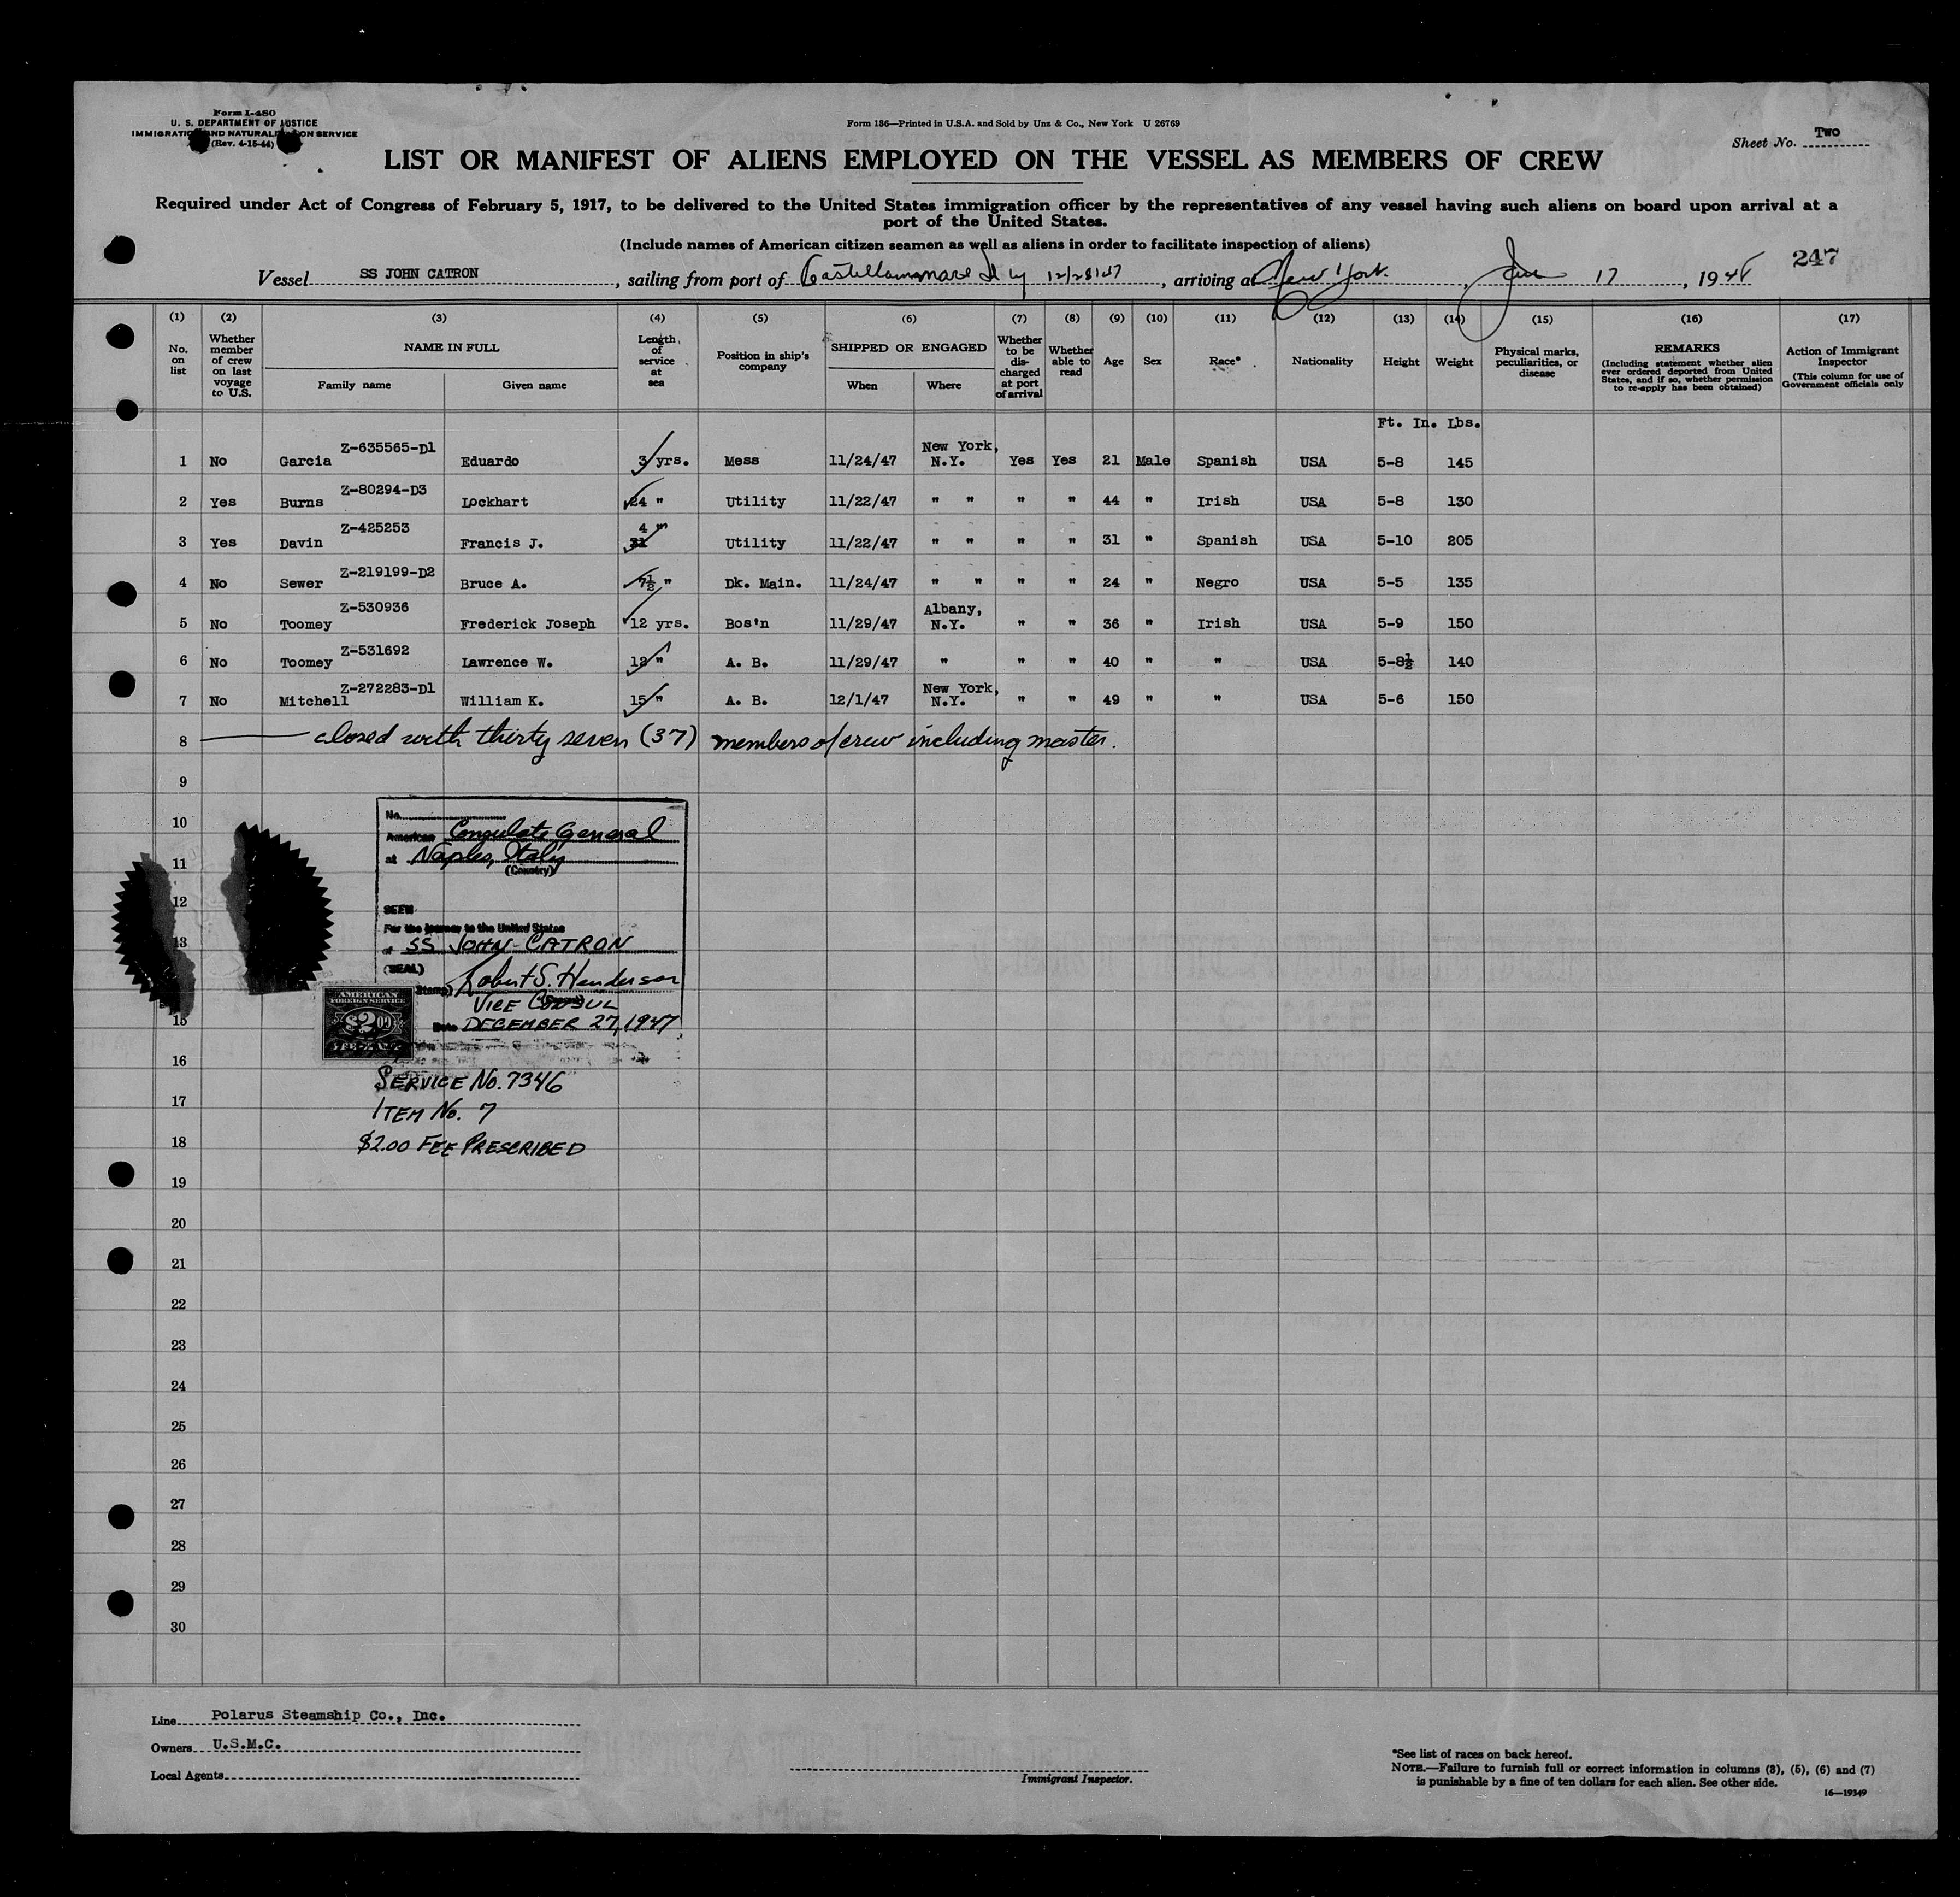 Form I-480
U. S. DEPARTMENT OF JUSTICE
IMMIGRATION AND NATURALIZATION SERVICE
(Rev. 4-15-44)
Form 136—Printed in U.S.A. and Sold by Unz & Co., New York U 26769
Sheet No. Two
LIST OR MANIFEST OF ALIENS EMPLOYED ON THE VESSEL AS MEMBERS OF CREW
Required under Act of Congress of February 5, 1917, to be delivered to the United States immigration officer by the representatives of any vessel having such aliens on board upon arrival at a
port of the United States.
(Include names of American citizen seamen as well as aliens in order to facilitate inspection of aliens)
247
Vessel SS JOHN CATRON, sailing from port of Castellammare Italy 12/28/47, arriving at New York, Jan 17, 1948
(1) (2) (3) (4) (5) (6) (7) (8) (9) (10) (11) (12) (13) (14) (15) (16) (17)
No. on list
Whether member of crew on last voyage to U.S.
NAME IN FULL
Family name Given name
Length of service at sea
Position in ship's company
SHIPPED OR ENGAGED
When Where
Whether to be discharged at port of arrival
Whether able to read
Age
Sex
Race*
Nationality
Height
Weight
Physical marks, peculiarities, or disease
REMARKS
(Including statement whether alien ever ordered deported from United States, and if so, whether permission to re-apply has been obtained)
Action of Immigrant Inspector
(This column for use of Government officials only
Ft. In. Lbs.
Z-635565-D1 New York,
1 No Garcia Eduardo 3 yrs. Mess 11/24/47 N.Y. Yes Yes 21 Male Spanish USA 5-8 145
Z-80294-D3
2 Yes Burns Lockhart 24 " Utility 11/22/47 " " " " 44 " Irish USA 5-8 130
Z-425253 4 "
3 Yes Davin Francis J. 31 Utility 11/22/47 " " " " 31 " Spanish USA 5-10 205
Z-219199-D2
4 No Sewer Bruce A. 7½ " Dk. Main. 11/24/47 " " " " 24 " Negro USA 5-5 135
Z-530936 Albany,
5 No Toomey Frederick Joseph 12 yrs. Bos'n 11/29/47 N.Y. " " 36 " Irish USA 5-9 150
Z-531692
6 No Toomey Lawrence W. 12 " A. B. 11/29/47 " " " 40 " " USA 5-8½ 140
Z-272283-D1 New York,
7 No Mitchell William K. 15 " A. B. 12/1/47 N.Y. " " 49 " " USA 5-6 150
8 closed with thirty seven (37) members of crew including master.
9
10
11
12
13
15
16
17
18
19
20
21
22
23
24
25
26
27
28
29
30
No.
American Consulate General
at Naples, Italy
(Country)
SEEN
For the journey to the United States
of SS JOHN CATRON
(SEAL) Robert S. Henderson
Stamp)
VICE CONSUL
Date DECEMBER 27, 1947
AMERICAN
FOREIGN SERVICE
$2.00
SERVICE No. 7346
ITEM No. 7
$2.00 FEE PRESCRIBED
Line Polarus Steamship Co., Inc.
Owners U.S.M.C.
Local Agents
Immigrant Inspector.
*See list of races on back hereof.
NOTE.—Failure to furnish full or correct information in columns (3), (5), (6) and (7)
is punishable by a fine of ten dollars for each alien. See other side.
16—19349